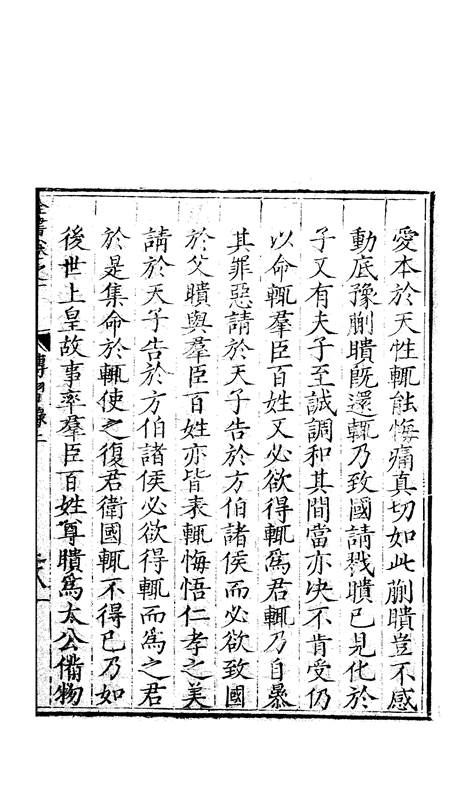 愛本於天性輒能悔痛真切如此蒯聵豈不感
動底豫蒯聵既還輒乃致國請戮聵已見化於
子又有夫子至誠調和其間當亦决不肯受仍
以命輒羣臣百姓又必欲得輒爲君輒乃自暴
其罪惡請於天子告於方伯諸侯而必欲致國
於父聵與羣臣百姓亦皆表輒悔悟仁孝之美
請於天子告於方伯諸侯必欲得輒而爲之君
於是集命於輒使之復君衛國輒不得已乃如
後世上皇故事率羣臣百姓尊聵爲太公備物